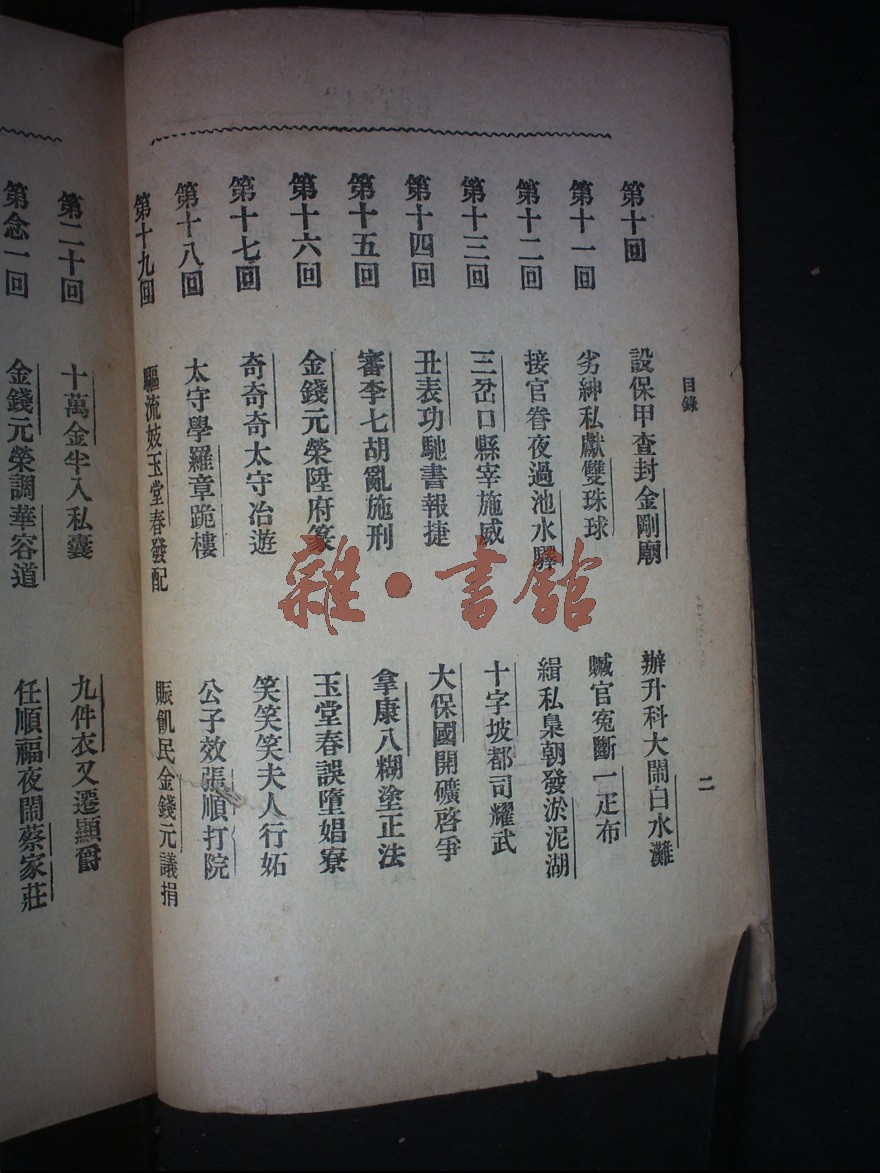 目錄
二
第十回 設保甲查封金剛廟 辦升科大鬧白水灘
第十一回 劣紳私獻雙珠球 贓官冤斷一疋布
第十二回 接官眷夜過池水驛 緝私梟朝發淤泥湖
第十三回 三岔口縣宰施威 十字坡都司耀武
第十四回 丑表功馳書報捷 大保國開礦啓爭
第十五回 審李七胡亂施刑 拿康八糊塗正法
第十六回 金錢元榮陞府篆 玉堂春誤墮娼寮
第十七回 奇奇奇太守冶遊 笑笑笑夫人行妬
第十八回 太守學羅章跪樓 公子效張順打院
第十九回 驅流妓玉堂春發配 賑飢民金錢元議捐
第二十回 十萬金半入私囊 九件衣又遷顯爵
第念一回 金錢元榮調華容道 任順福夜鬧蔡家莊
雜·書館